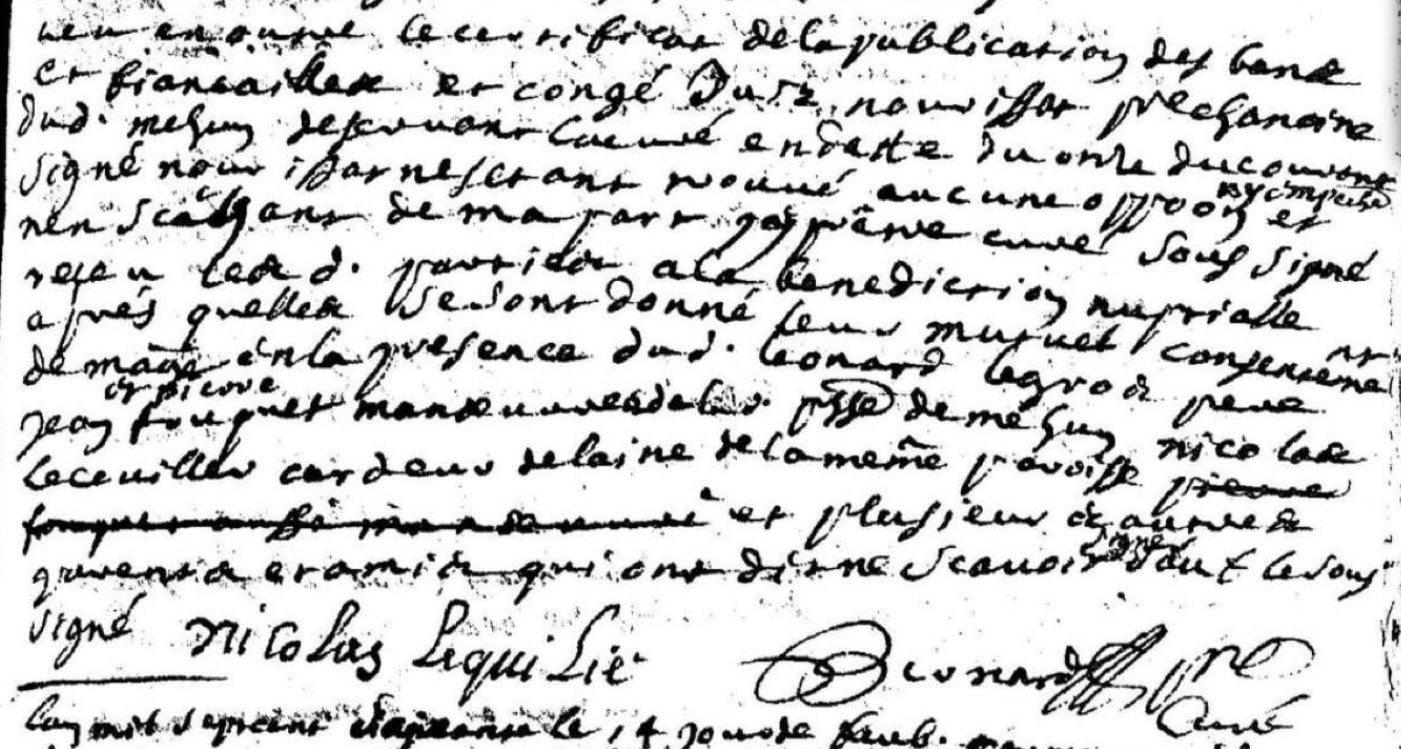 veu en outre le certificat de la publication des bans
et fiancailles et congé du sr. nourissat pre chanoine
dud. mehun desservant la curé en datte du onze du courant
signé nourissat ne sestant trouvé aucune oppoon ny empeschet et
nen scachant de ma part jay pretre curé soussigné
receu lesd. parties a la benediction nuptialle
aprés quelles se sont donné leur mutuel consentement
de mage en la presence dud. leonard legros pere
jean et pierre fouquet manœuvres de lad. psse de mehun nicolas
lecuiller cardeur de laine de la meme paroisse pierre
fouquet aussi manœuvre et plusieurs autres
parens et amis qui ont dit ne scavoir signer sauf le sous
signé nicolas Lequilié Bonard pre
Curé
Lan mil sept cent le 14 jour de feub.